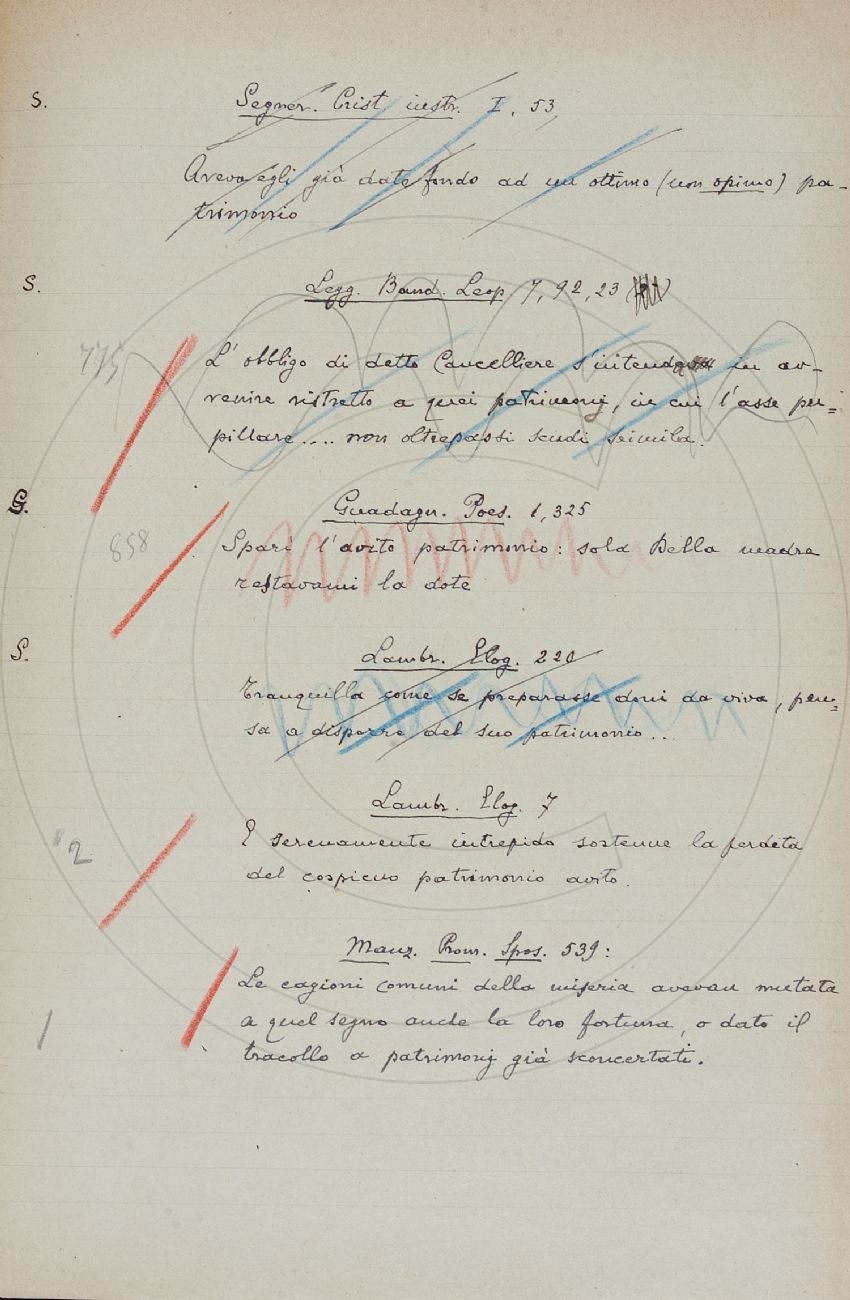 S. Segner. Crist. instr. I, 53,
Aveva egli già dato fondo ad un ottimo (non opimo) pa-
trimonio
S. Legg. Band. Leop. 7, 92, 23
775 L' obbligo di detto Cancelliere s'intenda in av-
venire ristretto a quei patrimonj, in cui l'asse pu-
pillare .... non oltrepassi scudi seimila.
G. Guadagn. Poes. 1, 325
858 Sparì l'avito patrimonio: sola Della madre
restavami la dote
S. Lambr. Elog. 220
Tranquilla come se preparasse doni da viva, pen-
sa a disporre del suo patrimonio ...
Lambr. Elog. 7
2 E serenamente intrepido sostenne la perdita
del cospicuo patrimonio avito.
Manz. Prom. Spos. 539:
Le cagioni comuni della miseria avevan mutata
1 a quel segno anche la loro fortuna, o dato il
tracollo a patrimonj già sconcertati.